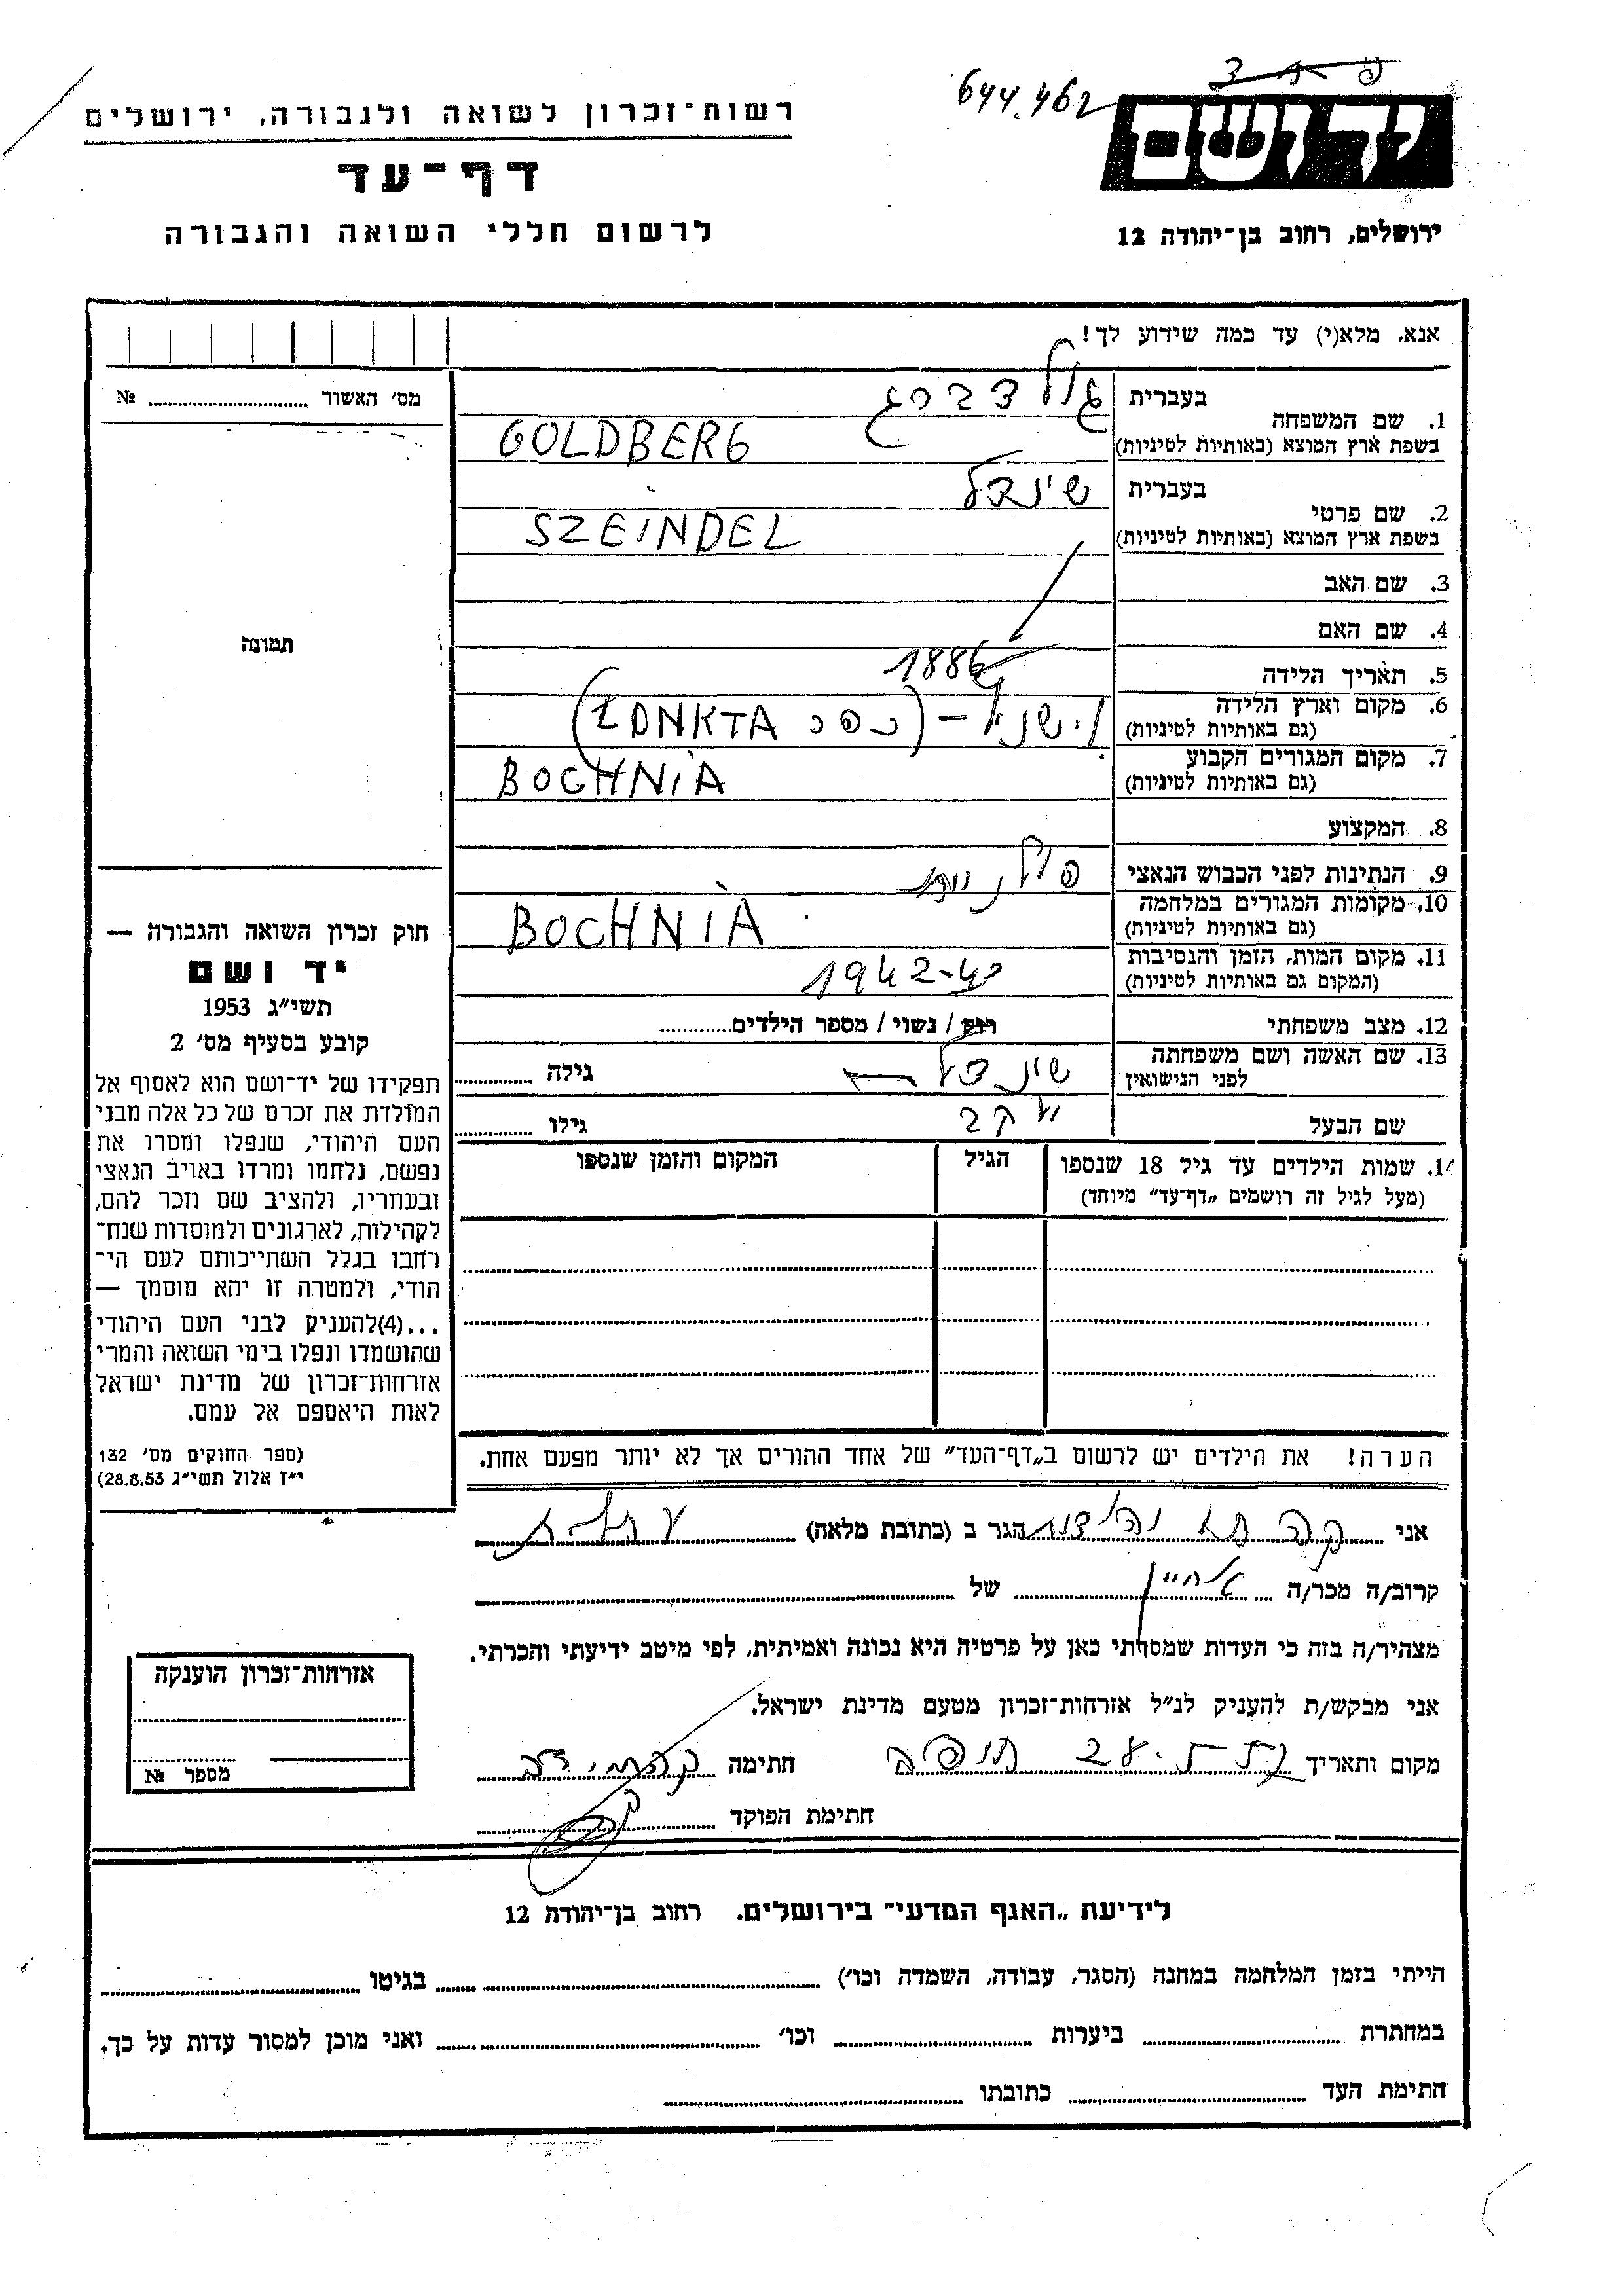 644.462
יד ושם
רשות־זכרון לשואה ולגבורה, ירושלים
דף־עד
לרשום חללי השואה והגבורה
ירושלים, רחוב בן־יהודה 12
אנא, מלא(י) עד כמה שידוע לך!
מס׳ האשור ........ №
1. שם המשפחה
בעברית גולדברג
בשפת ארץ המוצא (באותיות לטיניות) GOLDBERG
2. שם פרטי
בעברית שינדל
בשפת ארץ המוצא (באותיות לטיניות) SZEINDEL
3. שם האב
4. שם האם
תמונה
5. תאריך הלידה 1886
6. מקום וארץ הלידה
(גם באותיות לטיניות)
7. מקום המגורים הקבוע
(גם באותיות לטיניות) BOCHNIA
8. המקצוע
9. הנתינות לפני הכבוש הנאצי
10. מקומות המגורים במלחמה
(גם באותיות לטיניות) BOCHNIA
11. מקום המות, הזמן והנסיבות
(המקום גם באותיות לטיניות) 1942
12. מצב משפחתי רווק / נשוי / מספר הילדים........
13. שם האשה ושם משפחתה
לפני הנישואין שינדל גילה ........
שם הבעל יעקב גילו ........
14. שמות הילדים עד גיל 18 שנספו
(מעל לגיל זה רושמים „דף־עד” מיוחד)
הגיל
המקום והזמן שנספו
הערה! את הילדים יש לרשום ב„דף־העד” של אחד ההורים אך לא יותר מפעם אחת.
חוק זכרון השואה והגבורה —
יד ושם
תשי״ג 1953
קובע בסעיף מס׳ 2
תפקידו של יד־ושם הוא לאסוף אל
המולדת את זכרם של כל אלה מבני
העם היהודי, שנפלו ומסרו את
נפשם, נלחמו ומרדו באויב הנאצי
ובעוזריו, ולהציב שם וזכר להם,
לקהילות, לארגונים ולמוסדות שנח־
רבו בגלל השתייכותם לעם הי־
הודי, ולמטרה זו יהא מוסמך —
...(4)להעניק לבני העם היהודי
שהושמדו ונפלו בימי השואה והמרי
אזרחות־זכרון של מדינת ישראל
לאות היאספם אל עמם.
(ספר החוקים מס׳ 132
י״ז אלול תשי״ג 28.8.53)
אני ........ הגר ב (כתובת מלאה) ........
קרוב/ה מכר/ה ........ של ........
מצהיר/ה בזה כי העדות שמסרתי כאן על פרטיה היא נכונה ואמיתית, לפי מיטב ידיעתי והכרתי.
אני מבקש/ת להעניק לנ״ל אזרחות־זכרון מטעם מדינת ישראל.
מקום ותאריך ........ חתימה ........
חתימת הפוקד ........
אזרחות־זכרון הוענקה
מספר №
לידיעת „האגף המדעי” בירושלים. רחוב בן־יהודה 12
הייתי בזמן המלחמה במחנה (הסגר, עבודה, השמדה וכו׳) ........ בגיטו ........
במחתרת ........ ביערות ........ וכו׳ ........ ואני מוכן למסור עדות על כך.
חתימת העד ........ כתובתו ........